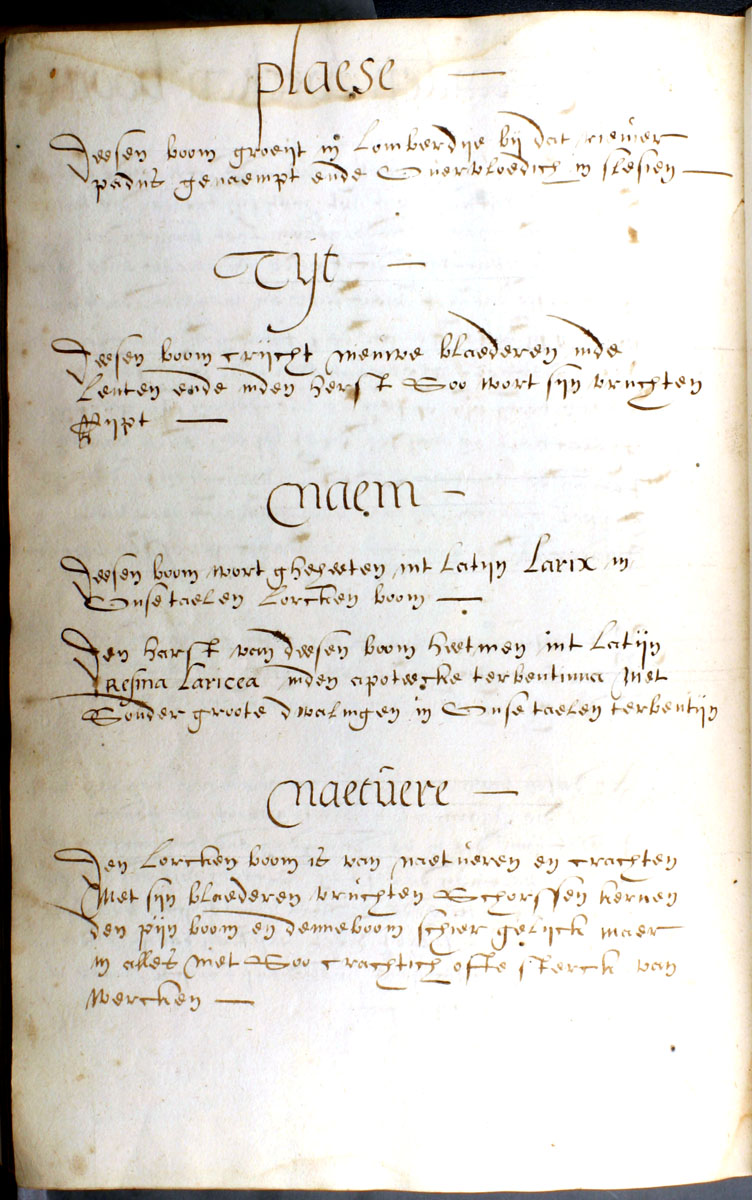 plaese —
Deesen boom groeijt in Lomberdije bij dat rievier
padus genaempt ende Overvloedich in slesien —
Tijt —
Deesen boom crijcht nieuwe blaederen inde
Lenten ende inden herfst Soo wort sijn vruchten
Rijpt —
Naem —
Deesen boom wort gheheeten int Latijn Larix in
Onse taelen Lorcken boom —
Den harst van deesen boom heetmen int Latijn
Resina Laricea inden apoteecke terbentinna Niet
Sonder groote dwalingen in Onse taelen terbentijn
Naetuere —
Den Lorcken boom is van naetueren en crachten
Met sijn blaederen vruchten Schorssen kernen
den pijn boom en denneboom schier gelijck maer
in alles niet Soo crachtich ofte sterck van
Wercken —